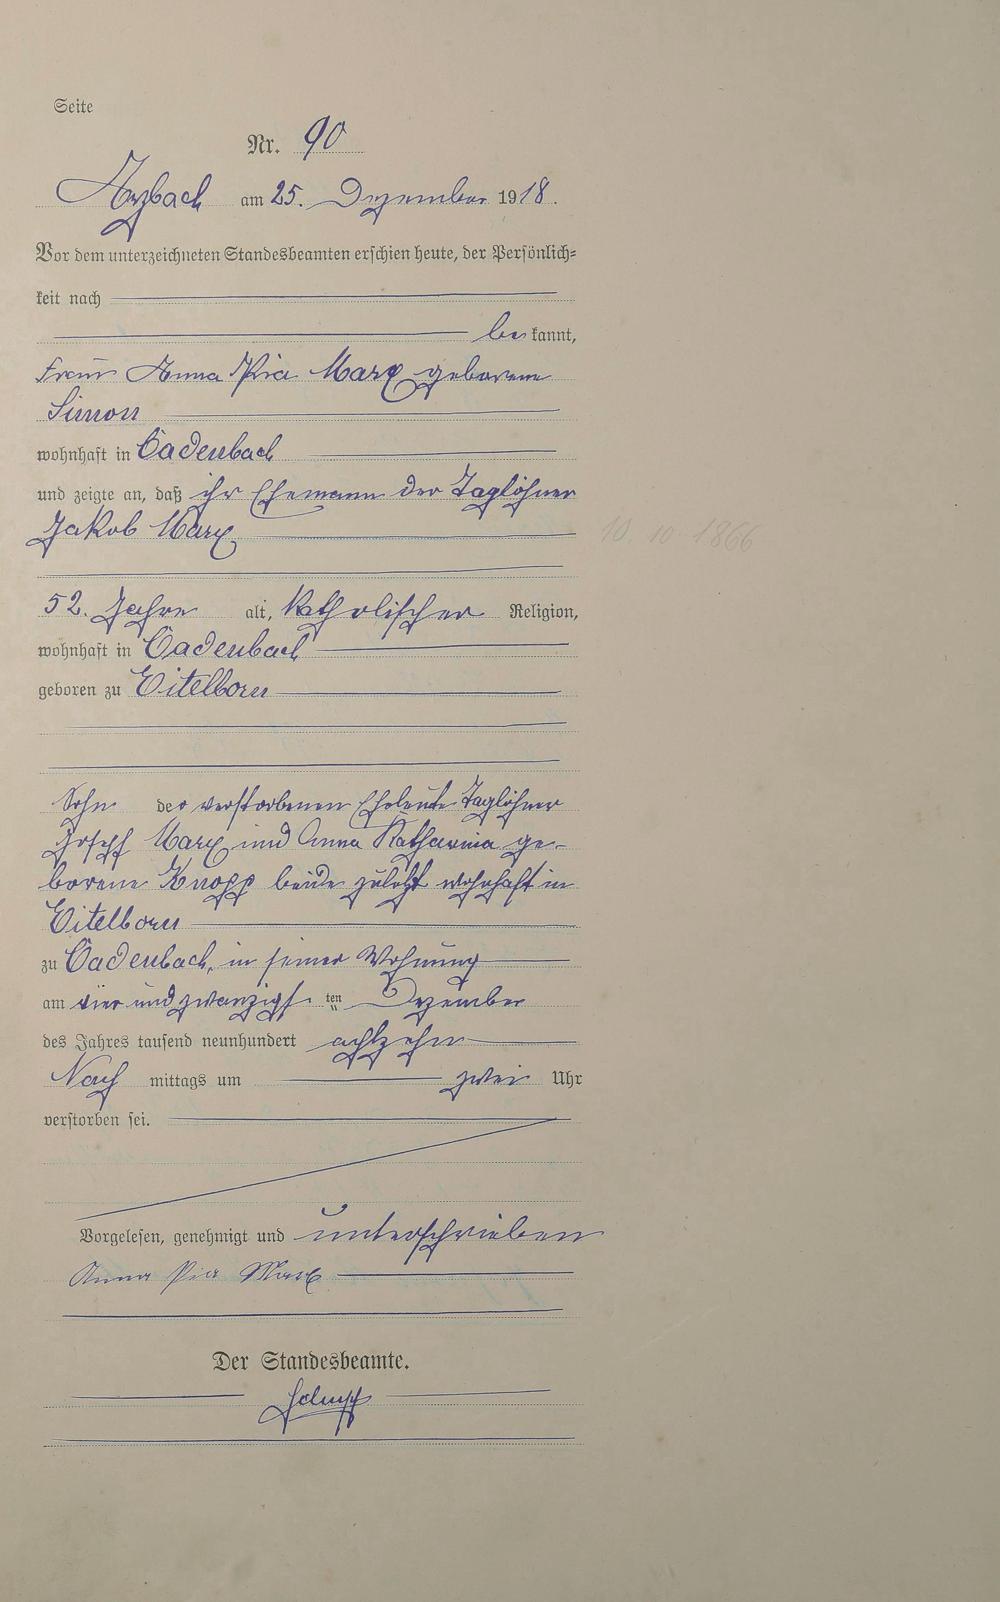 Seite
Nr. 90
Arzbach am 25. Dezember 1918.
Vor dem unterzeichneten Standesbeamten erschien heute, der Persönlich=
keit nach
be kannt,
Frau Anna Pia Marx geborene
Simon
wohnhaft in Cadenbach
und zeigte an, daß ihr Ehemann der Taglöhner
Jakob Marx
10. 10 1866
52. Jahre alt, katholischer Religion,
wohnhaft in Cadenbach
geboren zu Eitelborn
Sohn der verstorbenen Eheleute Taglöhner
Joseph Marx und Anna Katharina ge-
borene Knopp beide zuletzt wohnhaft in
Eitelborn
zu Cadenbach, in seiner Wohnung
am vier und zwanzigs ten Dezember
des Jahres tausend neunhundert achtzehn
Nach mittags um zwei Uhr
verstorben sei.
Vorgelesen, genehmigt und unterschrieben
Anna Pia Marx
Der Standesbeamte.